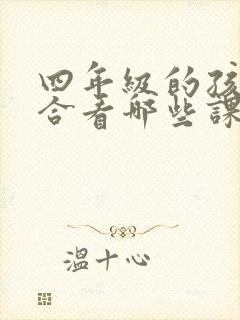 四年级的孩
合看哪些課
溫十心